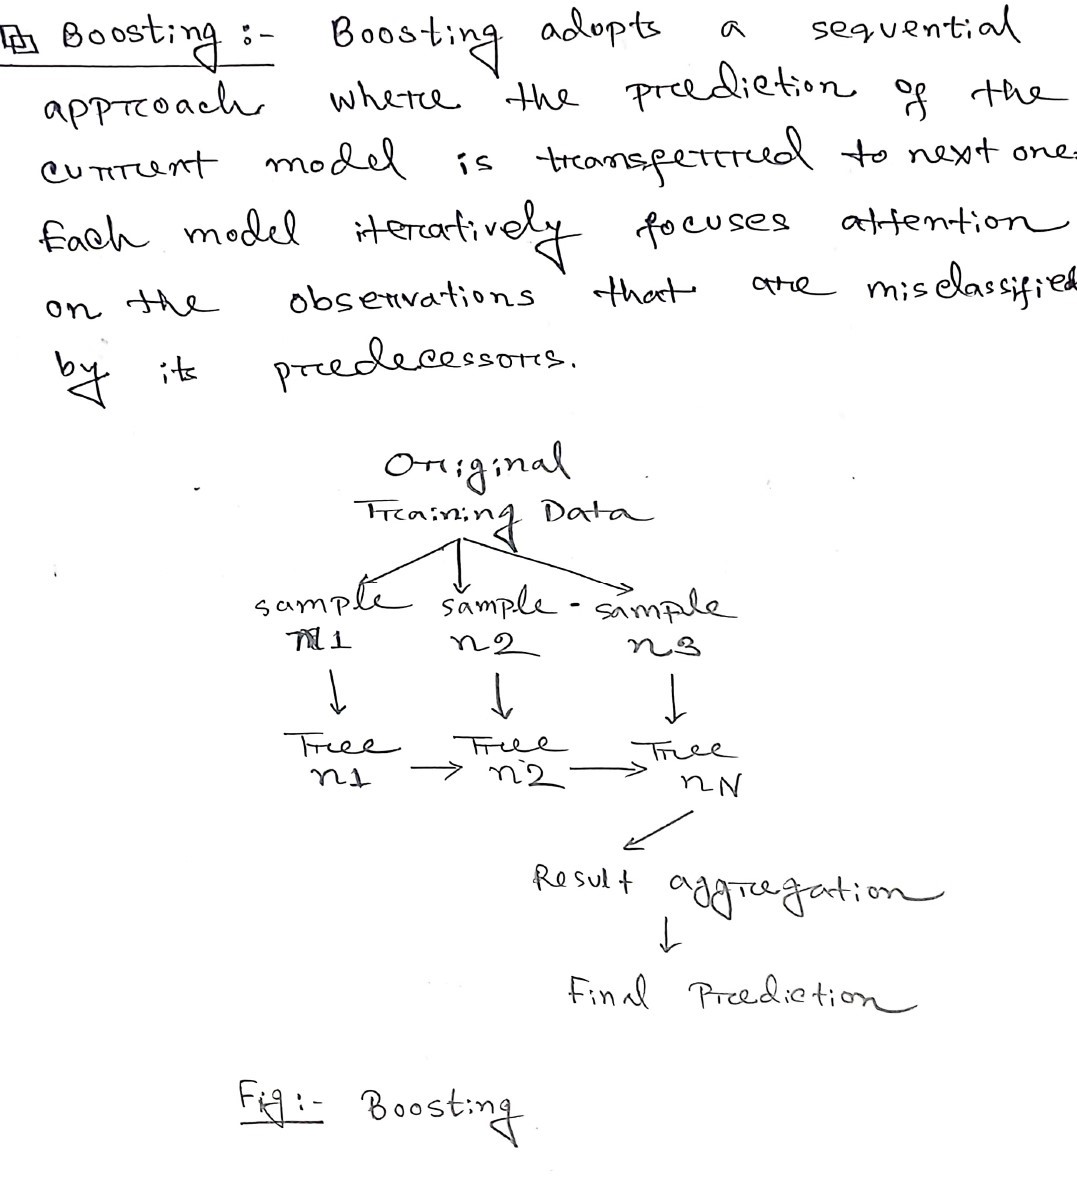 Boosting :- Boosting adopts a sequential
approach where the prediction of the
current model is transferred to next one.
Each model iteratively focuses attention
on the observations that are misclassified
by its predecessors.
Original
Training Data
sample sample - sample
n1 n2 n3
Tree Tree Tree
n1 n2 nN
Result aggregation
Final Prediction
Fig :- Boosting